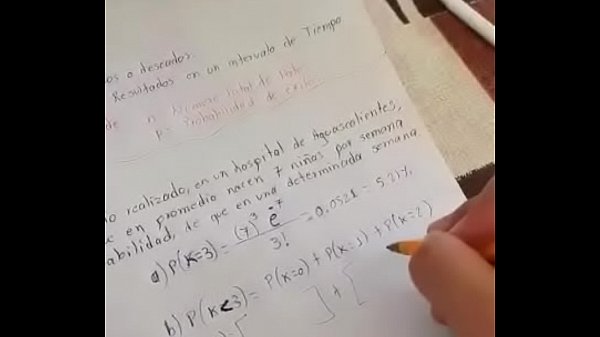 os o deseados.
Resultados en un intervalo de Tiempo
de n = Numero total de
P = Probabilidad de exito
o realizado, en un hospital de Aguascalientes,
e en promedio nacen 7 niños por semana
abilidad, de que en una determinada semana
a) P(x=3) = (7)^3 e^-7 / 3! = 0.0521 = 5.21%
b) P(x<3) = P(x=0) + P(x=1) + P(x=2)
= [ ] + [